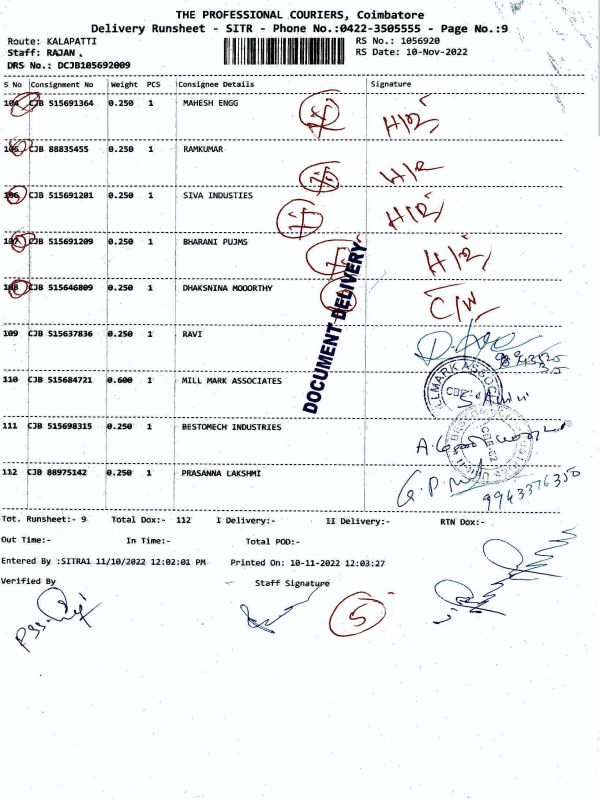 THE PROFESSIONAL COURIERS, Coimbatore
Delivery Runsheet - SITR - Phone No.:0422-3505555 - Page No.:9
Route: KALAPATTI RS No.: 1056920
Staff: RAJAN . RS Date: 10-Nov-2022
DRS No.: DCJB105692009
S No Consignment No Weight PCS Consignee Details Signature
104 CJB 515691364 0.250 1 MAHESH ENGG
105 CJB 88835455 0.250 1 RAMKUMAR
106 CJB 515691201 0.250 1 SIVA INDUSTIES
107 CJB 515691209 0.250 1 BHARANI PUJMS
108 CJB 515646809 0.250 1 DHAKSNINA MOOORTHY C/W
DOCUMENT DELIVERY
109 CJB 515637836 0.250 1 RAVI
110 CJB 515684721 0.600 1 MILL MARK ASSOCIATES
111 CJB 515698315 0.250 1 BESTOMECH INDUSTRIES
112 CJB 88975142 0.250 1 PRASANNA LAKSHMI
9943376350
Tot. Runsheet:- 9 Total Dox:- 112 I Delivery:- II Delivery:- RTN Dox:-
Out Time:- In Time:- Total POD:-
Entered By :SITRA1 11/10/2022 12:02:01 PM Printed On: 10-11-2022 12:03:27
Verified By Staff Signature
5